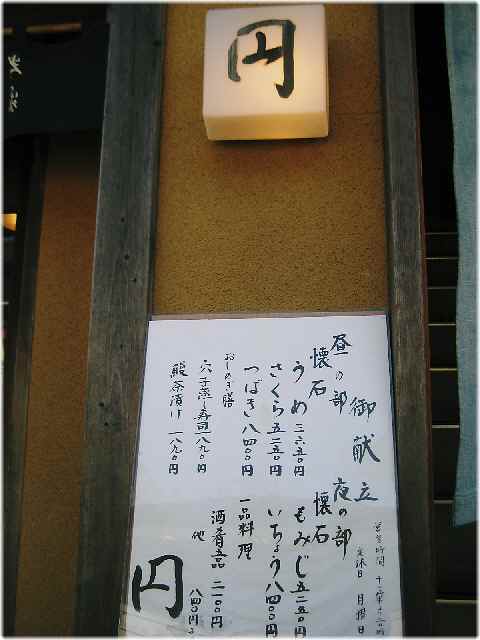 円
御献立
昼の部
懐石
うめ 三六五〇円
さくら 五二五〇円
つばき 八四〇〇円
おしのぎ膳
穴子蒸し寿司 一八九〇円
鰻茶漬け 一八九〇円
夜の部
懐石
もみじ 五二五〇円
いちょう 八四〇〇円
一品料理
酒肴五品 二一〇〇円
他
八四〇円
営業時間
定休日 月曜日
円